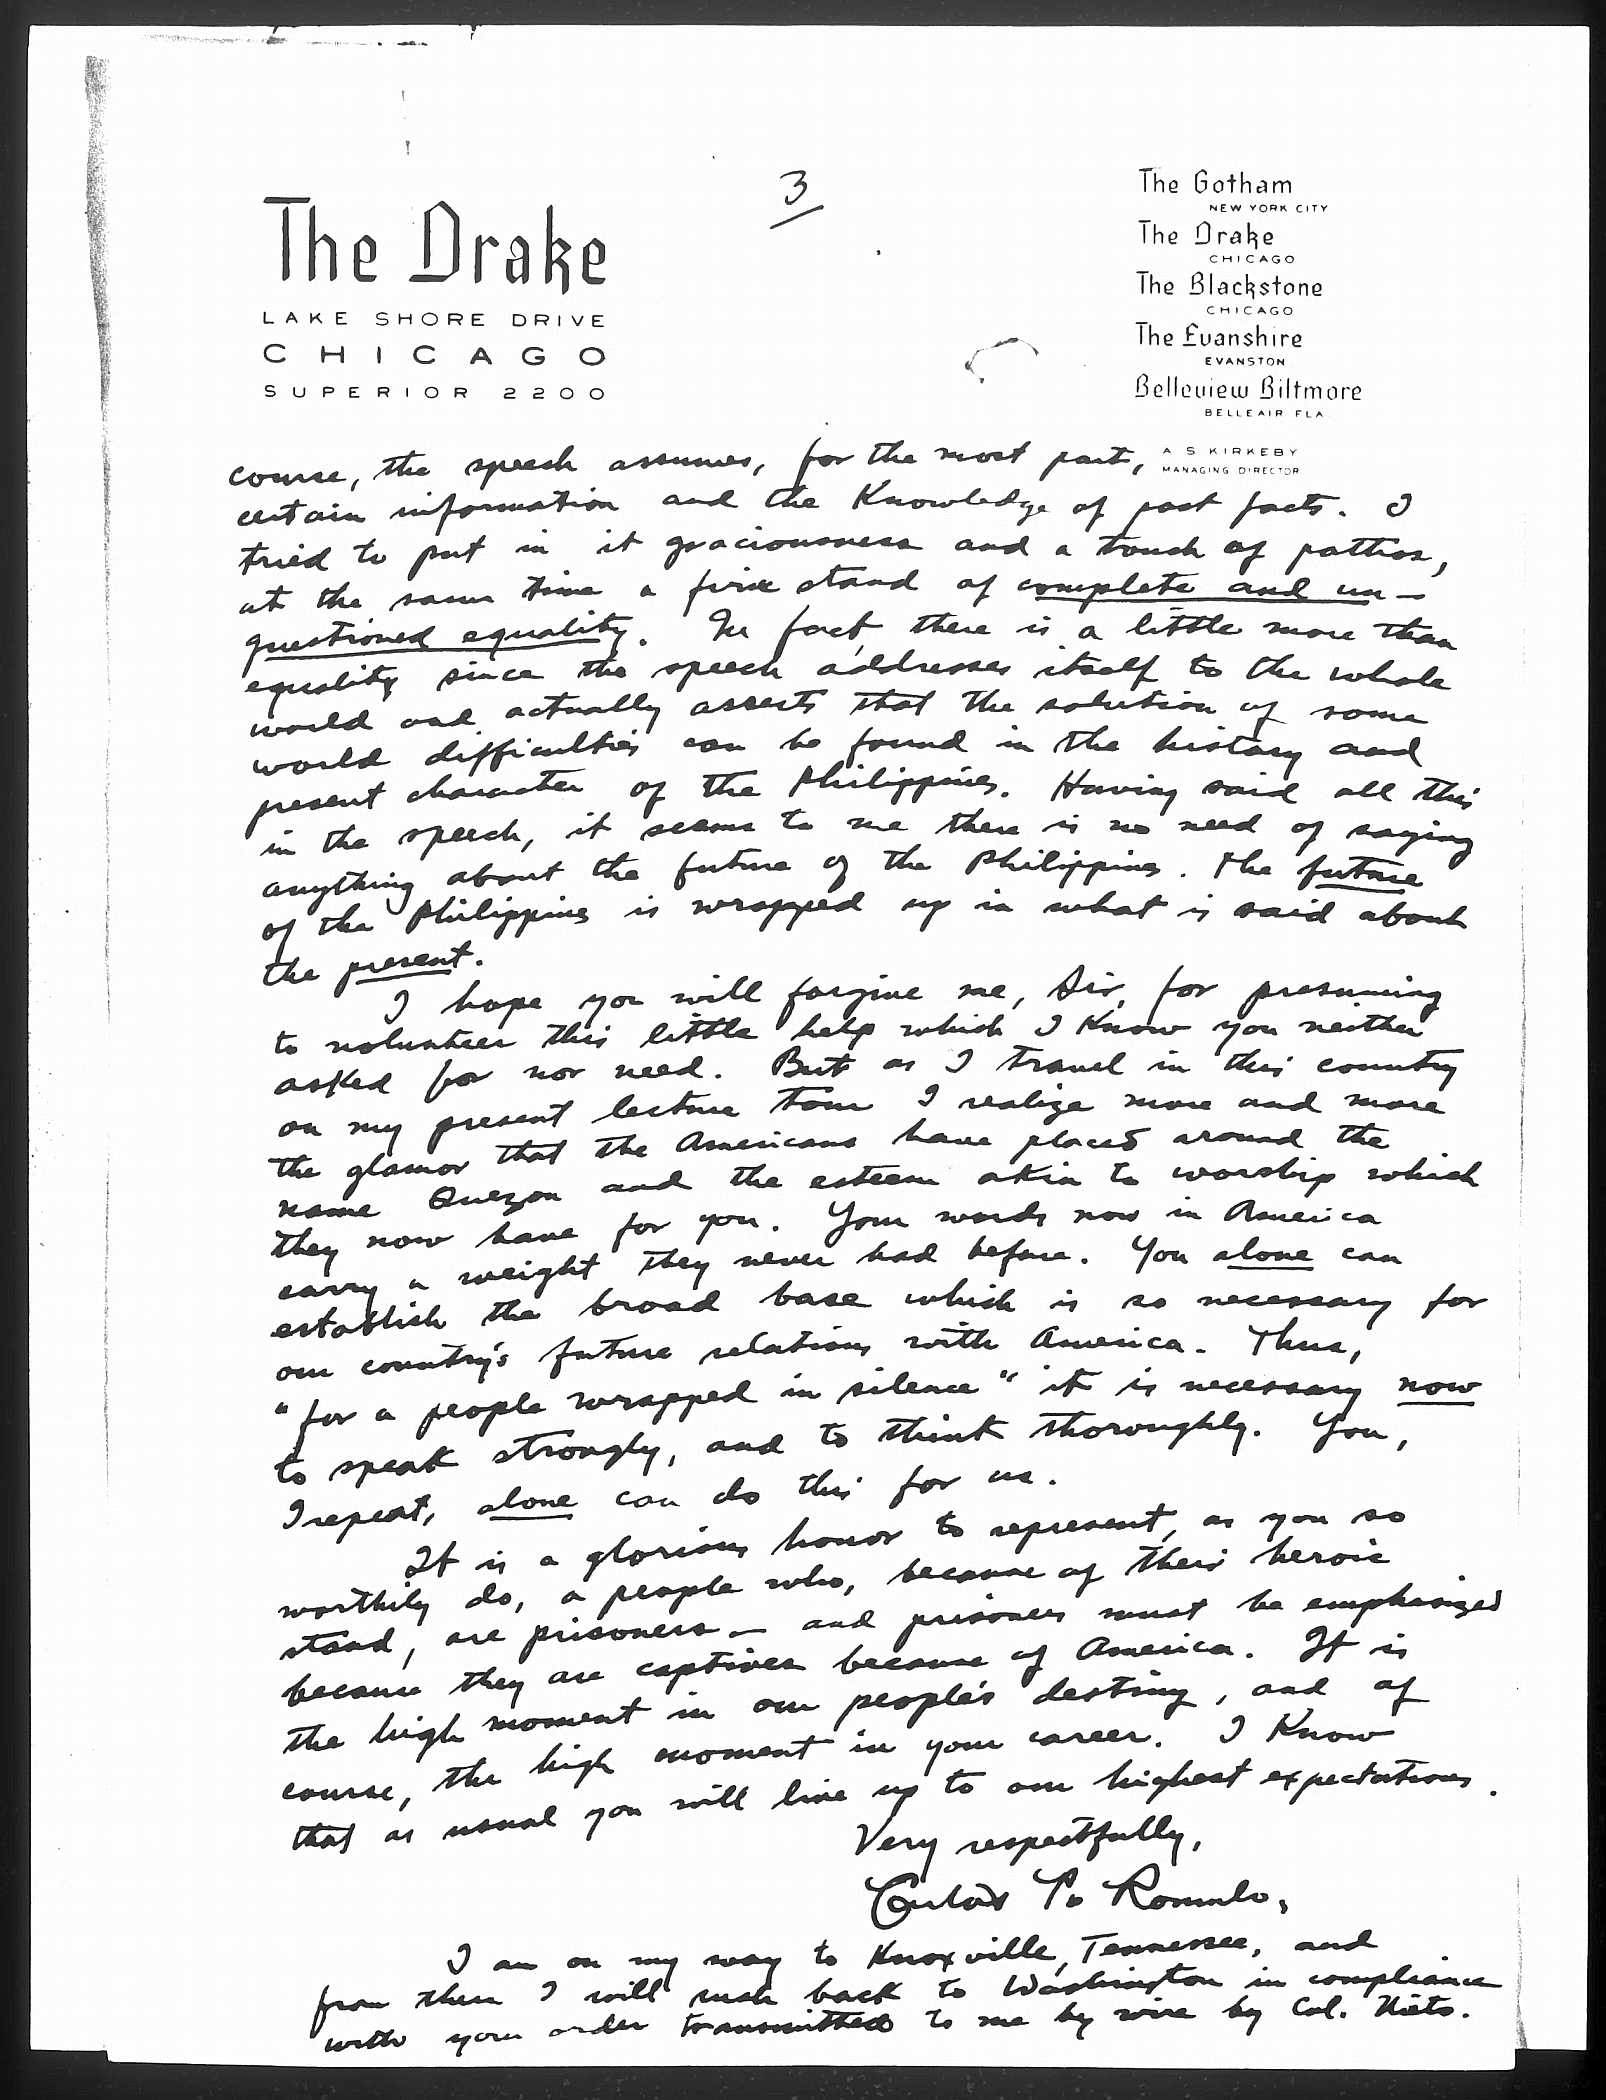 3
The Drake
LAKE SHORE DRIVE
CHICAGO
SUPERIOR 2200
The Gotham
NEW YORK CITY
The Drake
CHICAGO
The Blackstone
CHICAGO
The Evanshire
EVANSTON
Belleview Biltmore
BELLEAIR FLA
A S KIRKEBY
MANAGING DIRECTOR
course, the speech assumes, for the most part,
certain information and the Knowledge of past facts. I
tried to put in it graciousness and a touch of pathos,
at the same time a firm stand of complete and un-
questioned equality. In fact, there is a little more than
equality since the speech addresses itself to the whole
world and actually asserts that the solution of some
world difficulties can be found in the history and
present character of the Philippines. Having said all this
in the speech, it seems to me there is no need of saying
anything about the future of the Philippines. The future
of the Philippines is wrapped up in what is said about
the present.
I hope you will forgive me, Sir, for presuming
to volunteer this little help which I Know you neither
asked for nor need. But as I travel in this country
on my present lecture tour I realize more and more
the glamor that the Americans have placed around the
name Quezon and the esteem akin to worship which
they now have for you. Your words now in America
carry a weight they never had before. You alone can
establish the broad base which is so necessary for
our country's future relations with America. Thus,
"for a people wrapped in silence" it is necessary now
to speak strongly, and to think thoroughly. You,
I repeat, alone can do this for us.
It is a glorious honor to represent, as you so
worthily do, a people who, because of their heroic
stand, are prisoners — and prisoners must be emphasized
because they are captives because of America. It is
the high moment in our people's destiny, and of
course, the high moment in your career. I Know
that as usual you will live up to our highest expectations.
Very respectfully,
Carlos P. Romulo,
I am on my way to Knoxville, Tennessee, and
from there I will rush back to Washington in compliance
with your order transmitted to me by wire by Col. Nieto.